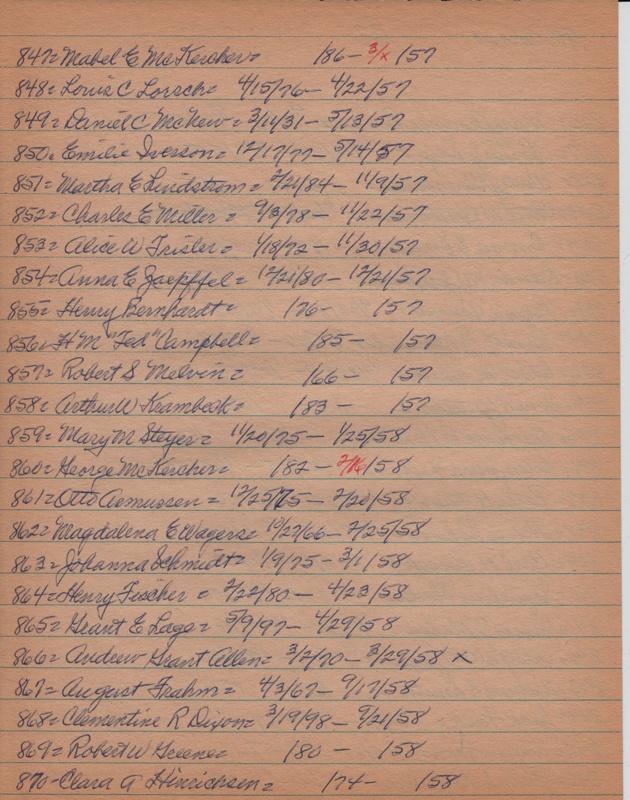 847= Mabel E McKercher= /86- 3/x /57
848= Louis C Lorsch= 4/15/76- 4/22/57
849= Daniel C McNew= 3/11/31- 5/13/57
850= Emilie Iverson= 12/17/77- 5/14/57
851= Martha E Lindstrom= 2/21/84- 11/9/57
852= Charles E Miller= 9/3/78- 11/22/57
853= Alice W Trisler= 1/18/72- 11/30/57
854= Anna E Zoepffel= 12/21/80- 12/21/57
855= Henry Bernhardt= /76- /57
856= H M "Ted" Campbell= /85- /57
857= Robert S Melvin= /66- /57
858= Arthur W Krambeck= /83- /57
859= Mary M Steyer= 11/20/75- 1/25/58
860= George McKercher= /82- /58
861= Otto Asmussen= 12/25/75- 2/20/58
862= Magdalena E Wagers= 10/27/66- 2/25/58
863= Johanna Schmidt= 1/9/75- 3/1/58
864= Henry Fischer = 2/22/80- 4/23/58
865= Grant E Lage= 5/9/97- 4/29/58
866= Andrew Grant Allen= 3/2/70- 3/29/58 x
867= August Frahm= 4/3/67- 9/17/58
868= Clementine R Dixon= 3/19/98- 9/21/58
869= Robert W Greene= /80- /58
870- Clara A Hinrichsen= /74- /58